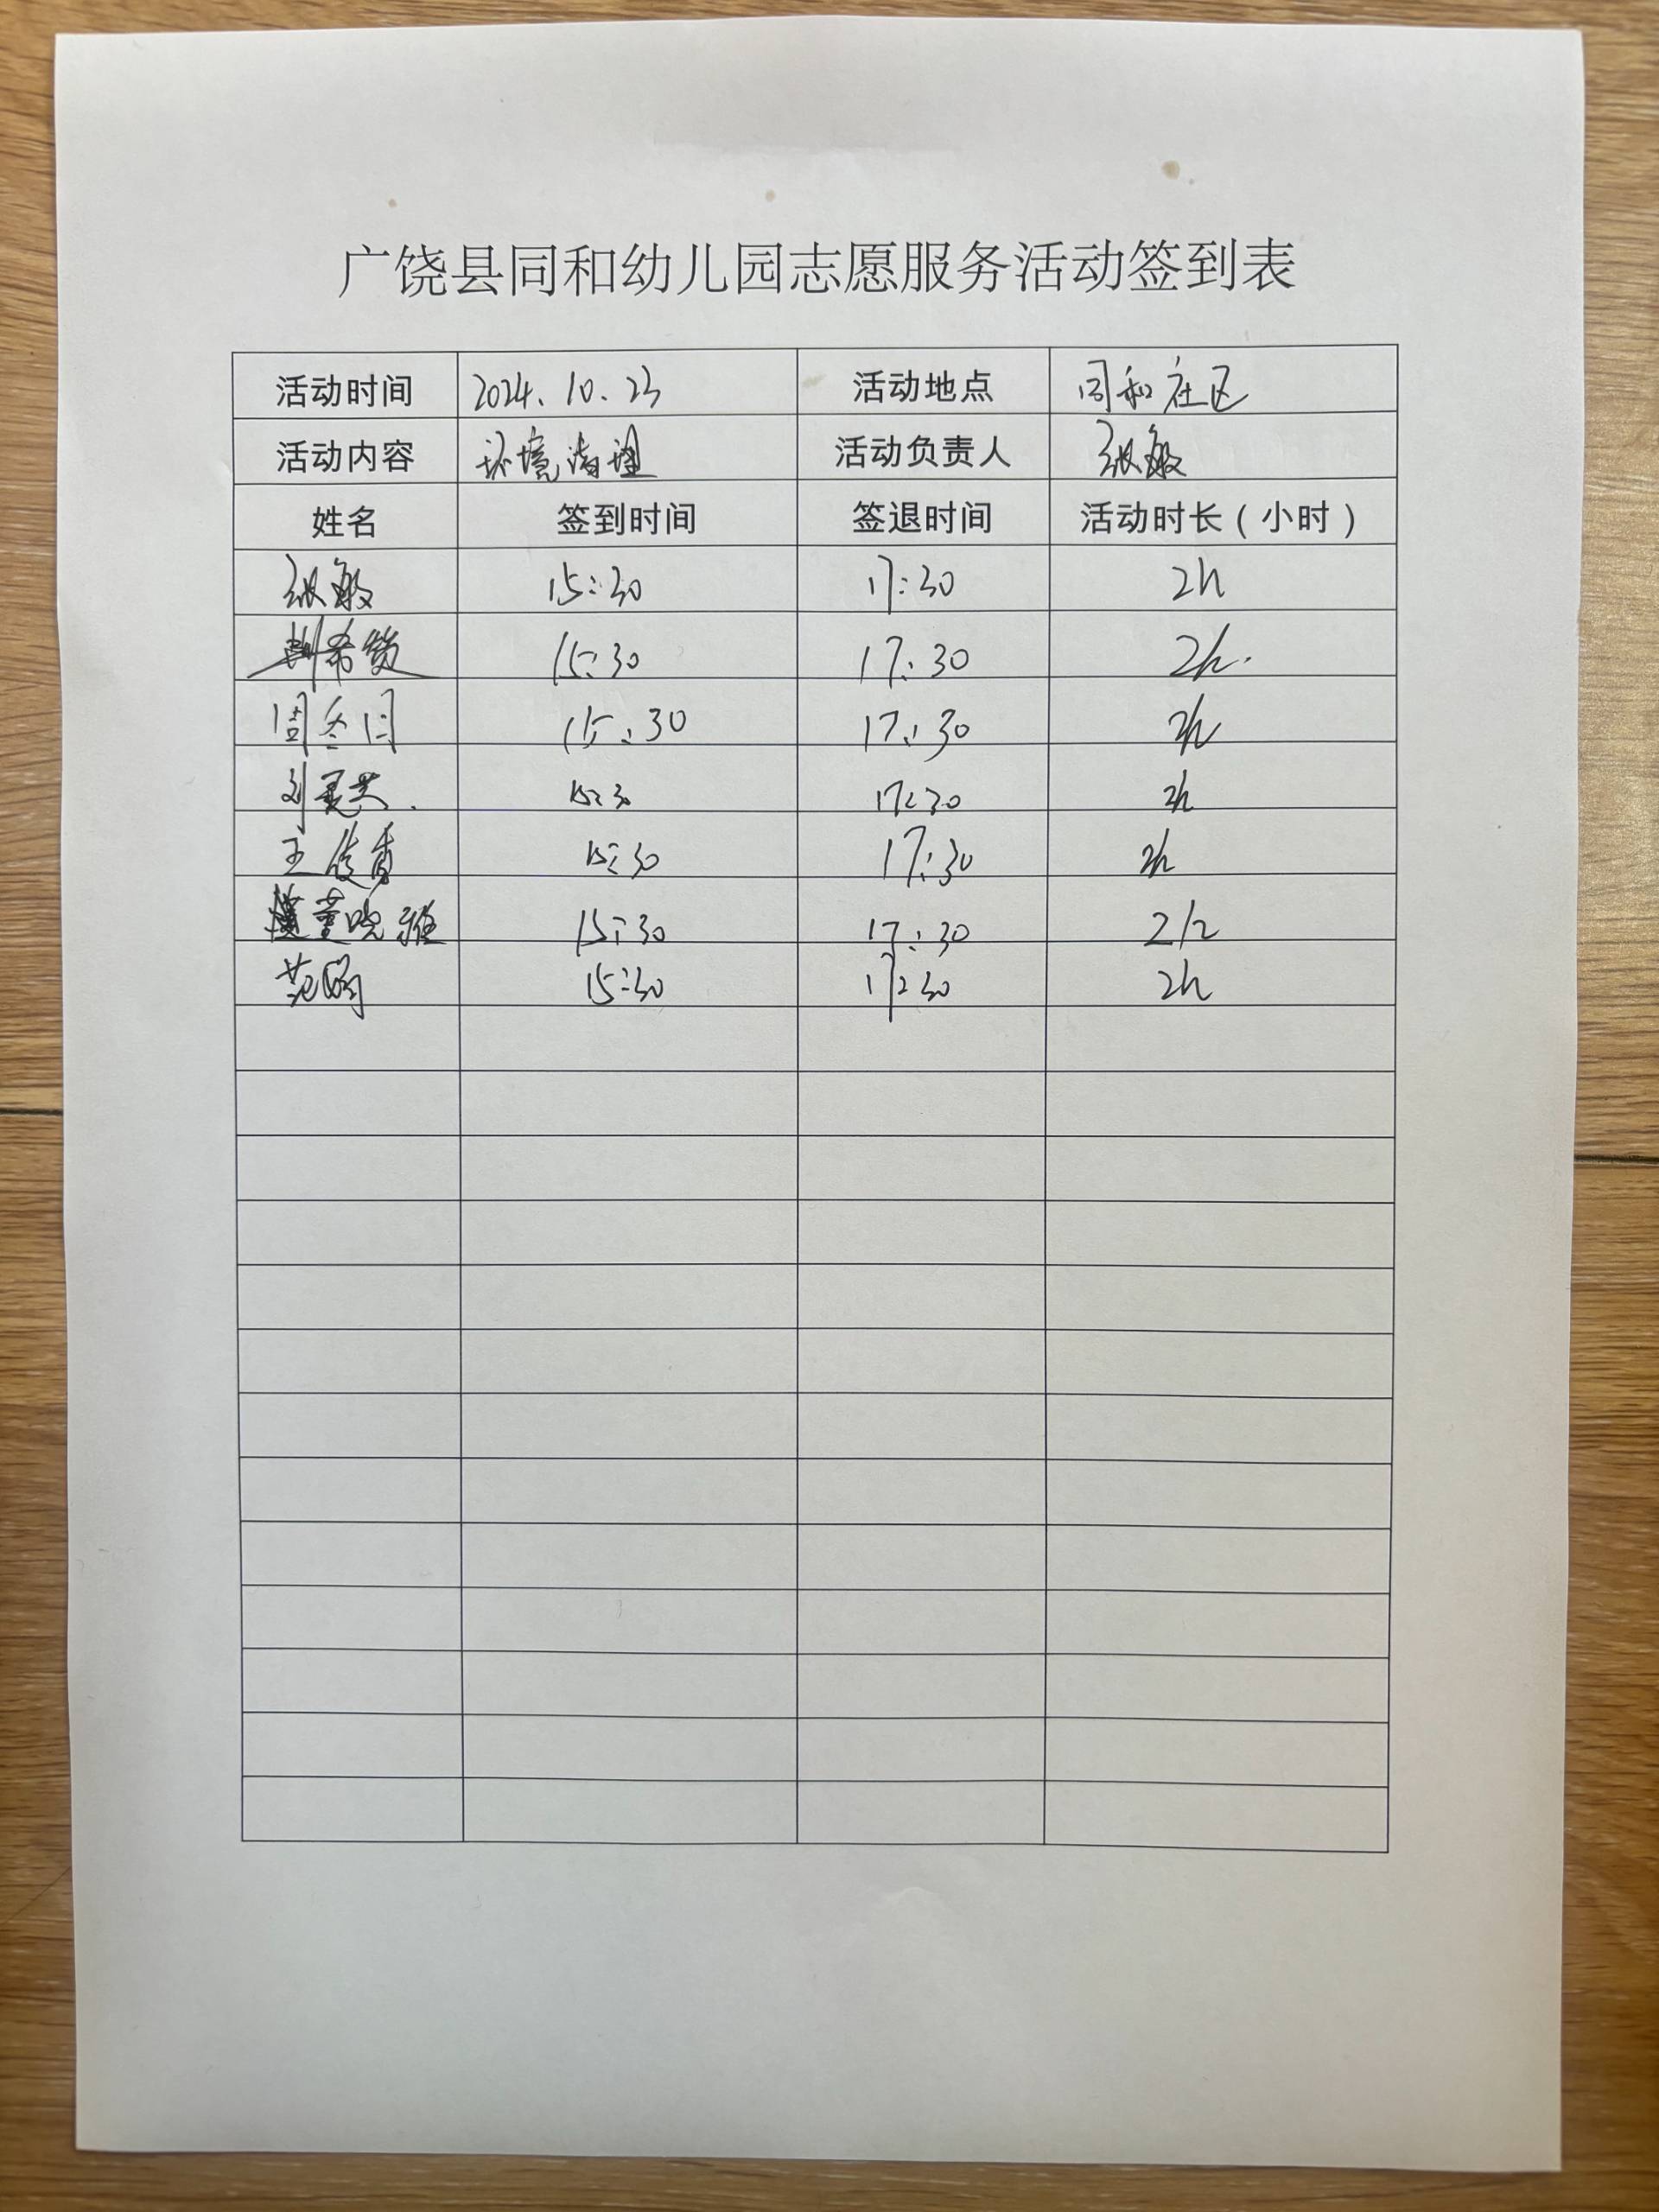 广饶县同和幼儿园志愿服务活动签到表
活动时间 2024.10.23 活动地点 同和社区
活动内容 环境清理 活动负责人 张敏
姓名 签到时间 签退时间 活动时长（小时）
张敏 15:30 17:30 2h
15:30 17:30 2h.
周冬月 15:30 17:30 2h
刘 15:30 17:30 2h
王俊青 15:30 17:30 2h
董晓雅 15:30 17:30 2h
范 15:30 17:30 2h